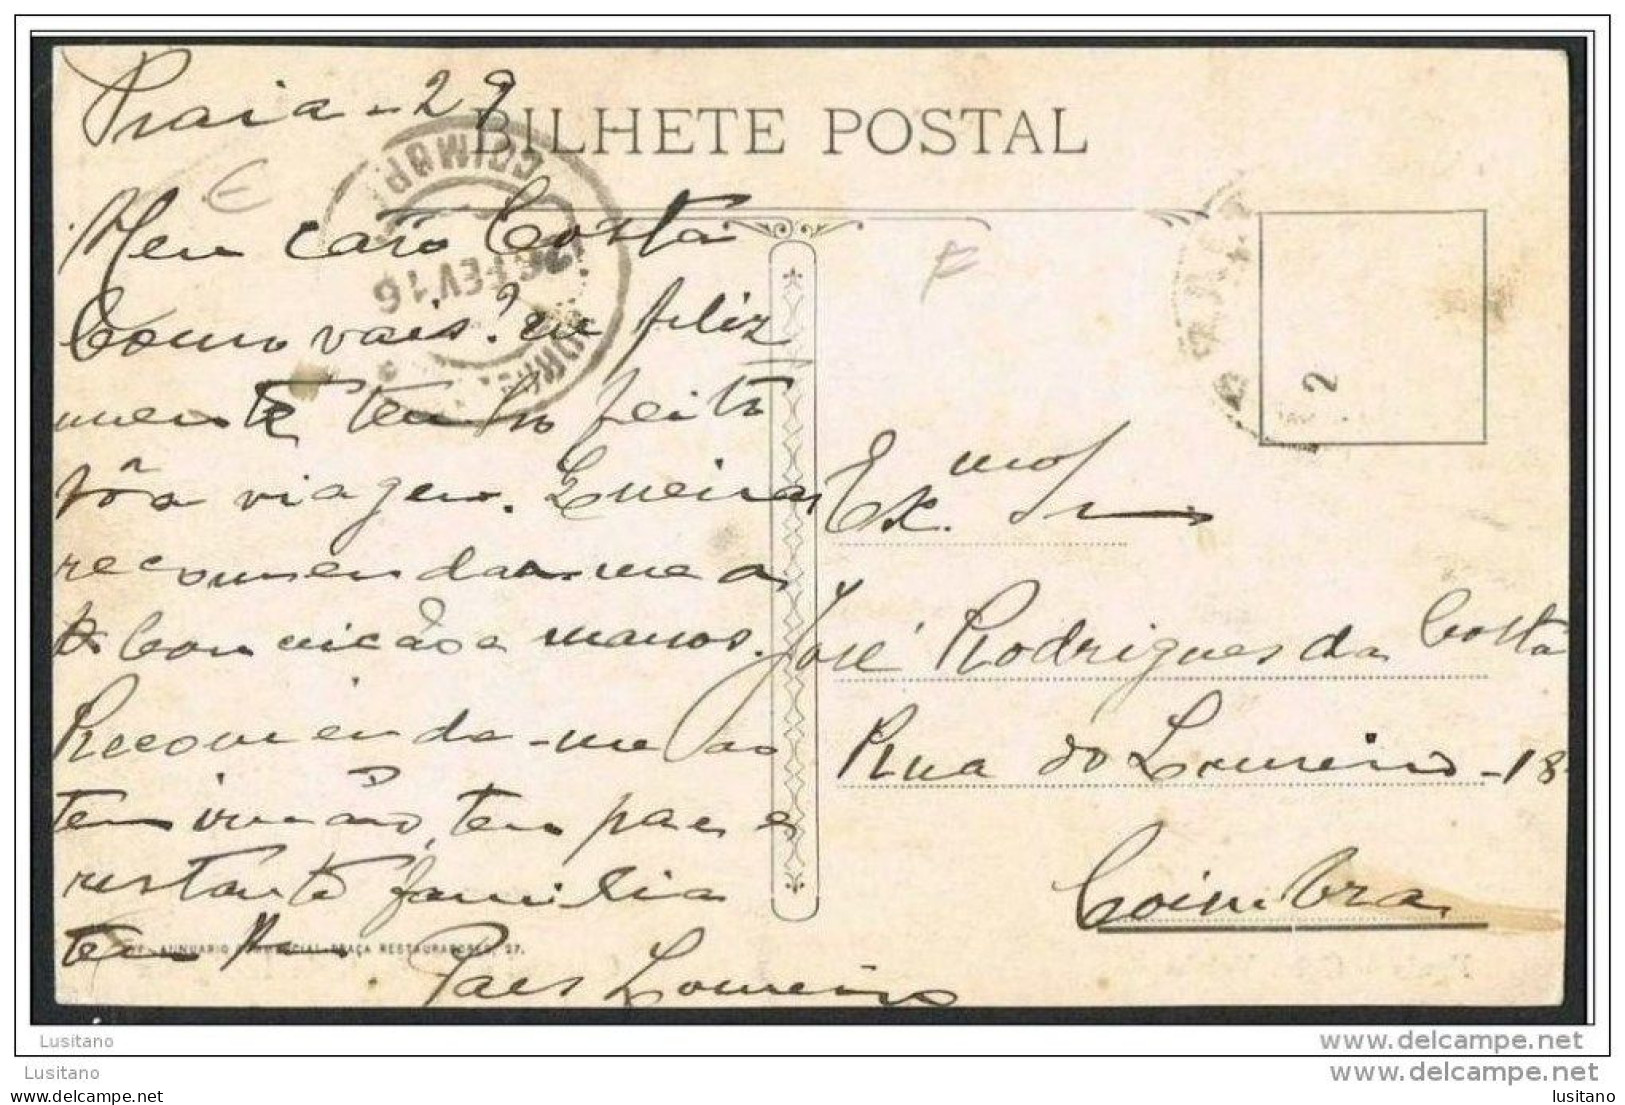 Praia - 29
BILHETE POSTAL
COIMBR
26 FEV 16
Meu caro Costa
Como vais? eu feliz
mente tenho feito
bôa viagem. Queiras
recomendar-me a
manos.
Recomenda-me ao
teu irmão, teu pae e
restante familia
teu
Paes Loureiro
ANNUARIO COMMERCIAL-PRAÇA RESTAURADORES, 27.
Ex.mo Snr
José Rodrigues da Costa
Rua do Loureiro - 18
Coimbra
2
Lusitano
www.delcampe.net
Lusitano
www.delcampe.net
https://www.delcampe.net
lusitano